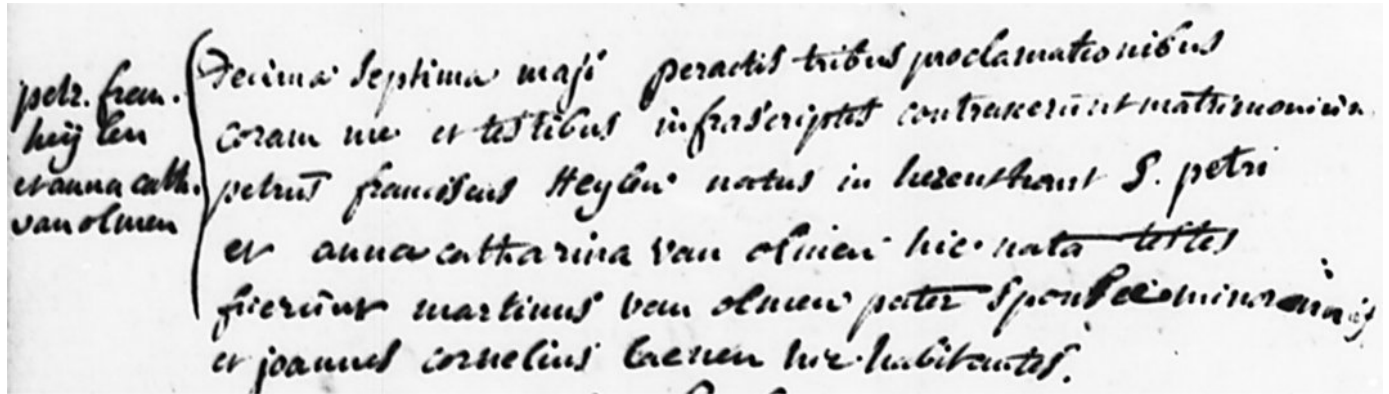 petr. fran.
heÿlen
et anna cath.
van olmen
Decima septima maji peractis tribus proclamationibus
coram me et testibus infrascriptis contraxerunt matrimonium
petrus franciscus Heylen natus in herenthout S. petri
et anna catharina van olmen hic nata testes
fuerunt martinus van olmen pater sponsae minorennis
et joannes cornelius laenen hic habitantes.